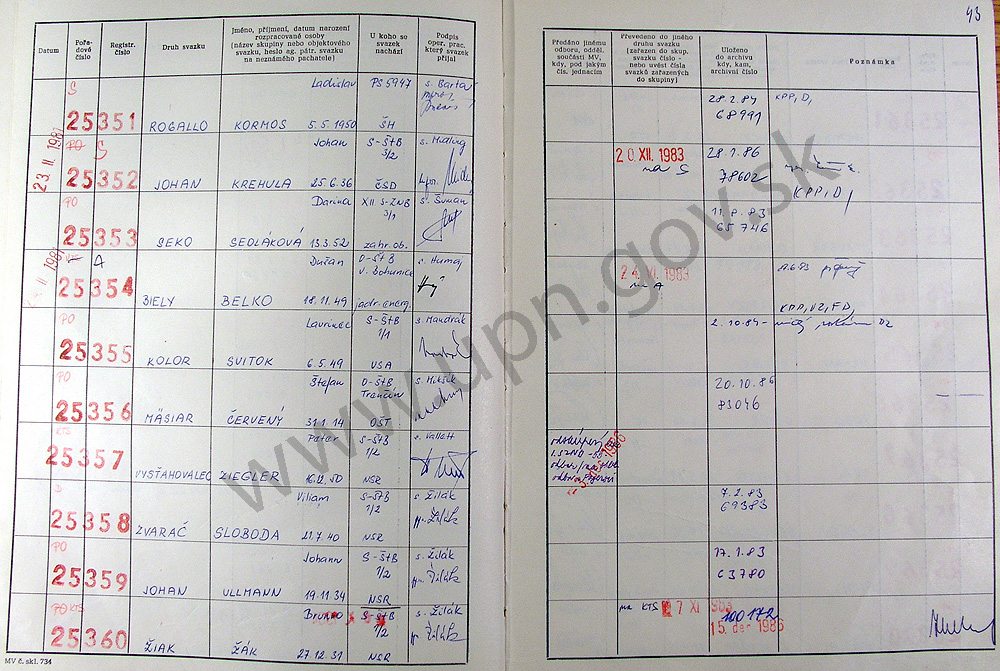 43
Datum
Pořadové číslo
Registr. číslo
Druh svazku
Jméno, příjmení, datum narození
rozpracované osoby
(název skupiny nebo objektového
svazku, heslo ag. pátr. svazku
na neznámého pachatele)
U koho se
svazek
nachází
Podpis
oper. prac.
který svazek
přijal
Předáno jinému
odboru, odděl.
součásti MV,
kdy, pod jakým
čís. jednacím
Převedeno do jiného
druhu svazku
(zařazen do skup.
svazku číslo -
nebo uvést čísla
svazků zařazených
do skupiny)
Uloženo
do archivu
kdy, kam,
archivní číslo
Poznámka
S Ladislav PS 5947 s. Barta
25351 ROGALLO KORMOS 5.5.1950 ŠH
28.2.84 KPP, D,
68991
23. II. 1981
PO S Johan S-ŠtB 3/2
25352 JOHAN KREHULA 25.6.36 ČSD
20 XII. 1983 28.1.86
na S 78602
KPP, D,
PO Darina XII. S-ZNB 3/1 s. Šuman
25353 SEKO SEDLÁKOVÁ 13.3.52 zahr. ob.
11.8.83
65746
II. 1981
A Dušan O-ŠtB s. Humaj
v. Bohunice
25354 BIELY BELKO 18.11.49 jadr. energ.
24. XI. 1983
na A
PO Laurinec S-ŠtB 1/1 s. Mandrák
25355 KOLOR SVITOK 6.5.49 USA
2.10.89
PO Štefan O-ŠtB Trenčín
25356 MÄSIAR ČERVENÝ 31.1.14 OŠT
20.10.86
83046
KTS Peter S-ŠtB 1/2 s. Vallett
25357 VYSŤAHOVALEC ZIEGLER 16.12.50 NSR
1986
D Viliam S-ŠtB 1/2 s. Žilák
25358 ZVARAČ SLOBODA 21.7.40 NSR
7.2.83
69383
PO Johann S-ŠtB 1/2 s. Žilák
25359 JOHAN ULLMANN 19.11.34 NSR
17.1.83
63780
PO KTS Bruno S-ŠtB 1/2 s. Žilák
25360 ŽIAK ŽÁK 27.12.31 NSR
na KTS 7 XI 1983 100172
15. dec 1986
MV č. skl. 734
www.upn.gov.sk